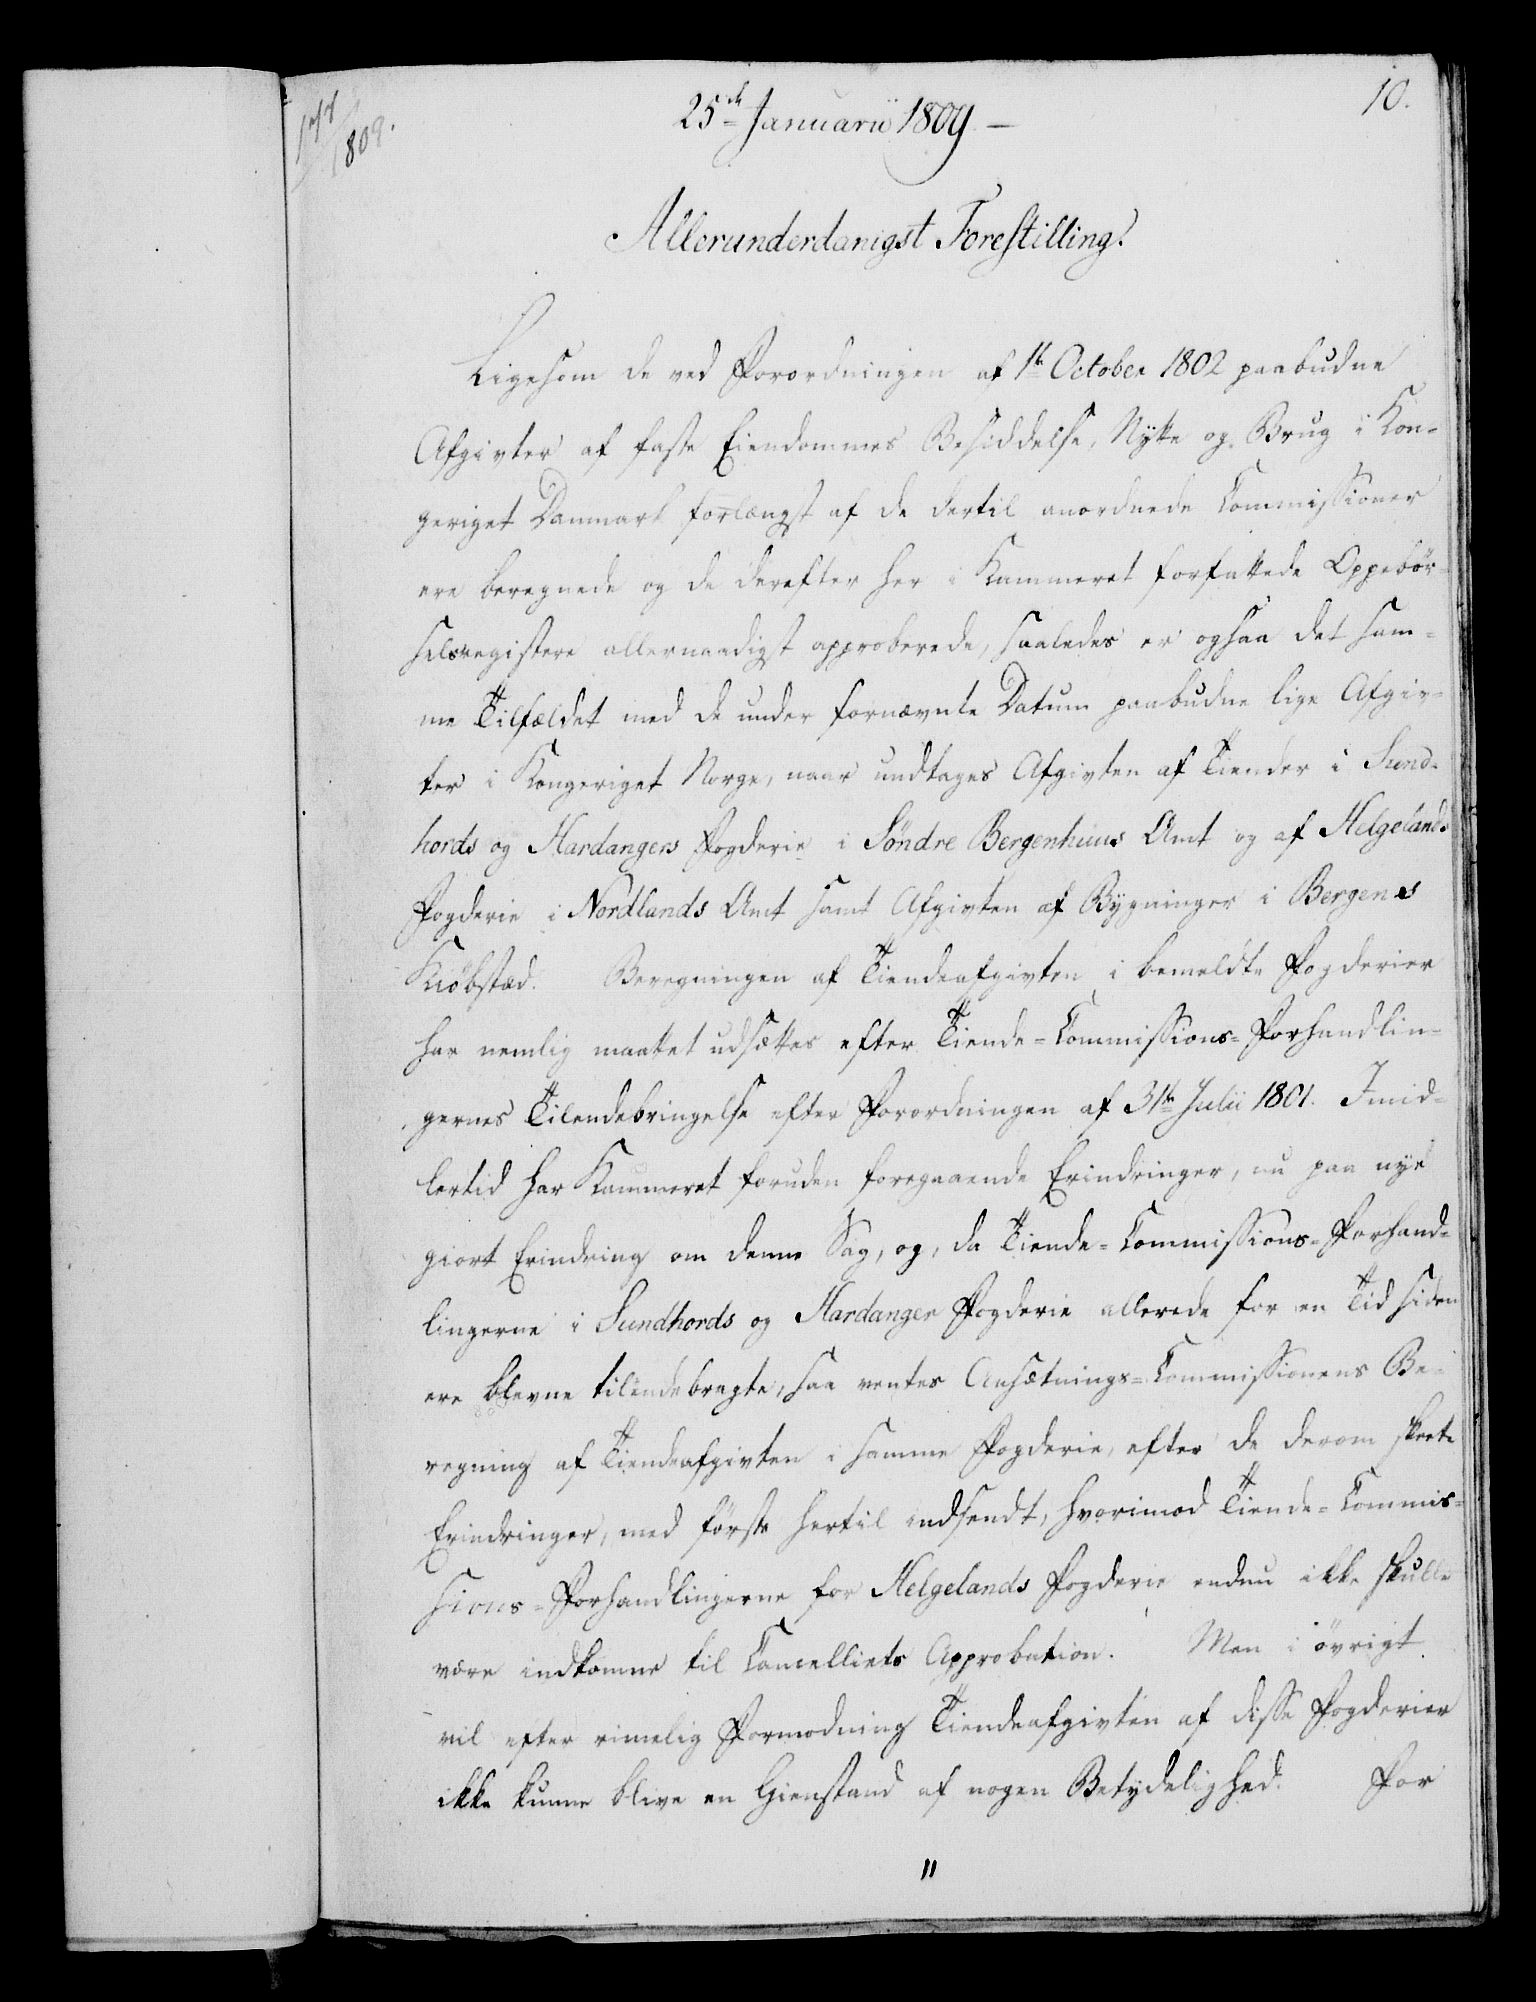 10.
25de Januarii 1809. —
177/1809.
Allerunderdanigst Forestilling!
Ligesom de ved Forordningen af 1te October 1802 paabudne
Afgivter af faste Eiendommes Besiddelse, Nytte og Brug i Kon-
geriget Danmark forlængst af de dertil anordnede Commissioner
ere beregnede og de derefter her i Kammeret forfattede Oppebör-
selsregistere allernaadigst approberede, saaledes er ogsaa det sam-
me Tilfældet med de under fornævnte Datum paabudne lige Afgiv-
ter i Kongeriget Norge, naar undtages Afgivten af Tiender i Sund-
hords og Hardangers Fogderie i Söndre Bergenhuus Amt og af Helgelands
Fogderie i Nordlands Amt samt Afgivten af Bygninger i Bergens
Kiöbstæd. Beregningen af Tiendeafgivten i bemeldte Fogderier
har nemlig maattet udsættes efter Tiende-Commissions-Forhandlin-
gernes Tilendebringelse efter Forordningen af 31te Julii 1801. Imid-
lertid har Kammeret foruden foregaaende Erindringer, nu paa nye
giort Erindring om denne Sag, og, da Tiende-Commissions-Forhand-
lingerne i Sundhords og Hardanger Fogderie allerede for en Tid siden
ere blevne tilendebragte, saa ventes Ansætnings-Commissionens Be-
regning af Tiendeafgivten i samme Fogderie, efter de derom skeete
Erindringer, med förste hertil indsendt, hvorimod Tiende-Commis-
sions-Forhandlingerne for Helgelands Fogderie endnu ikke skulle
være indkomne til Cancelliets Approbation. Men i övrigt
vil efter rimelig Formodning Tiendeafgivten af disse Fogderier
ikke kunne blive en Gienstand af nogen Betydelighed. For